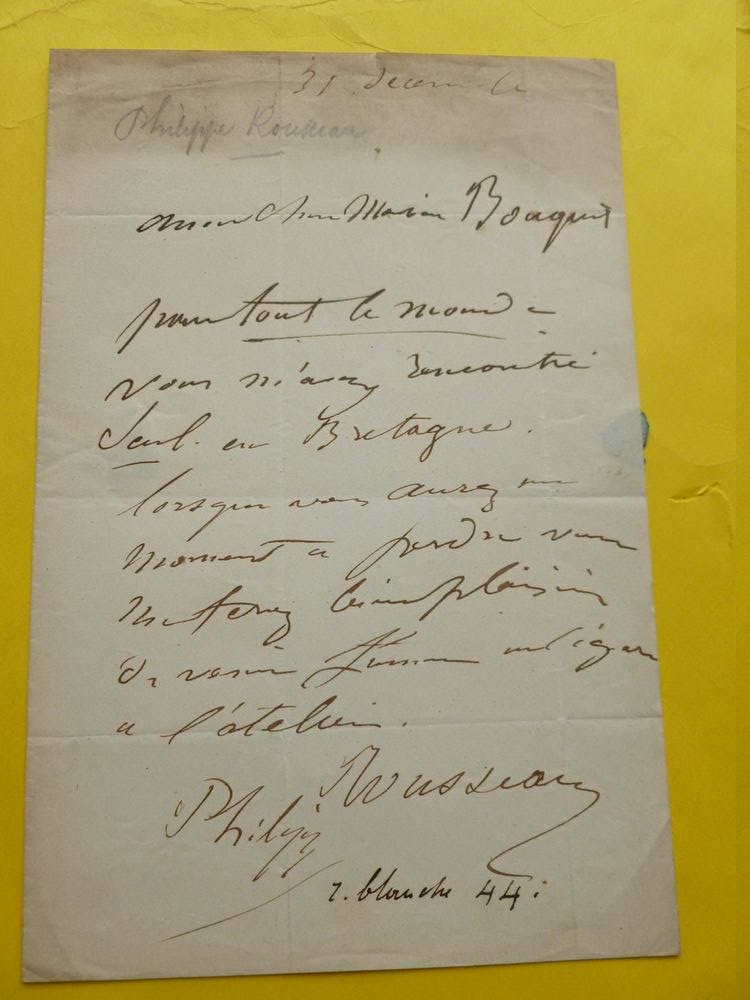 31 décembre
Philippe Rousseau
mon cher Bouquet
pour tout le monde
vous m'avez rencontré
seul. en Bretagne.
lorsque vous aurez un
moment a perdre vous
me ferez bien plaisir
de venir fumer un cigare
a l'atelier.
Philipp Rousseau
r. blanche 44.